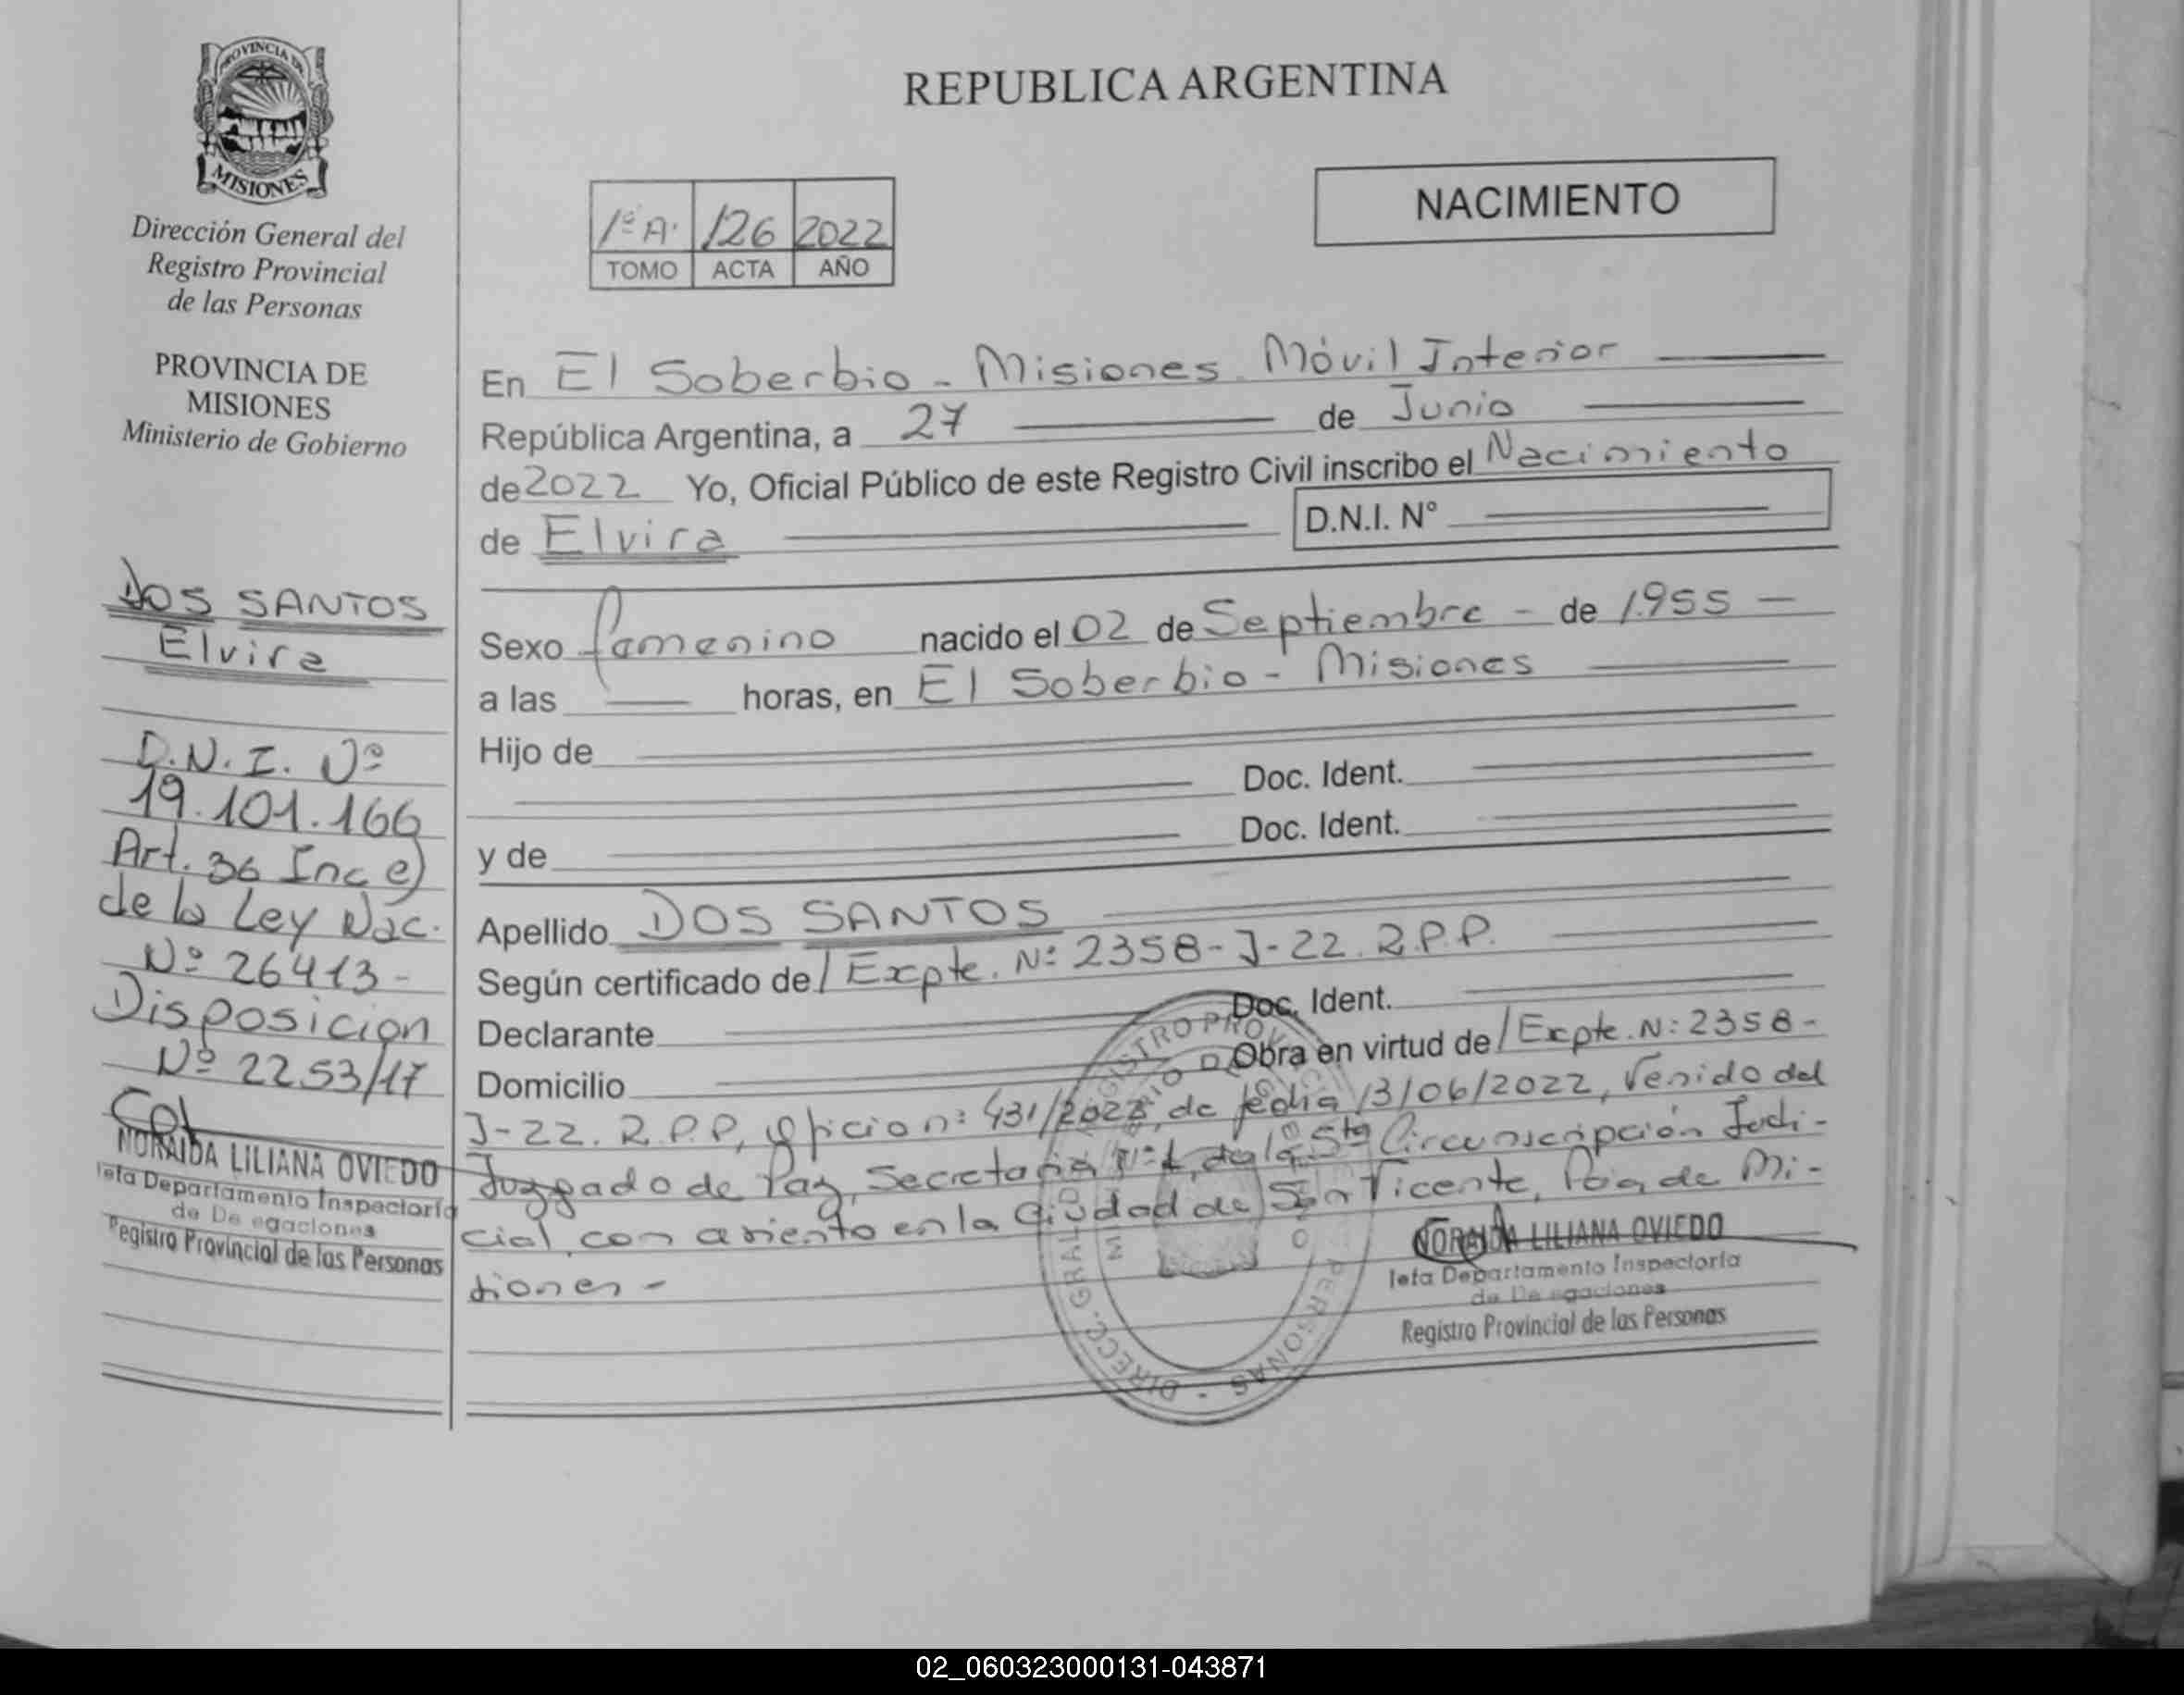 PROVINCIA DE
MISIONES
Dirección General del
Registro Provincial
de las Personas
PROVINCIA DE
MISIONES
Ministerio de Gobierno
DOS SANTOS
Elvira
D.N.I. Nº
19.101.166
Art. 36 Inc e)
de la Ley Nac.
Nº 26413-
Disposicion
Nº 2253/17
NORAIDA LILIANA OVIEDO
Jefa Departamento Inspectoría
de De egaciones
Registro Provincial de las Personas
REPUBLICA ARGENTINA
1º A. 126 2022
TOMO ACTA AÑO
NACIMIENTO
En El Soberbio - Misiones. Móvil Interior
República Argentina, a 27 de Junio
de 2022 Yo, Oficial Público de este Registro Civil inscribo el Nacimiento
de Elvira D.N.I. N°
Sexo famenino nacido el 02 de Septiembre - de 1.955 -
a las horas, en El Soberbio - Misiones
Hijo de
Doc. Ident.
y de Doc. Ident.
Apellido DOS SANTOS
Según certificado de/ Expte. Nº: 2358-J-22. R.P.P.
Declarante Doc. Ident.
Domicilio Obra en virtud de/ Expte. N: 2358-
J-22. R.P.P, oficio n: 431/2022, de fecha 13/06/2022, Venido del
Juzgado de Paz, Secretaria Nº 1, de la 5ta Circunscripción Judi-
cial, con asiento en la Ciudad de San Vicente, Pcia de Mi-
siones -
NORAIDA LILIANA OVIEDO
Jefa Departamento Inspectoría
de De egaciones
Registro Provincial de las Personas
DIRECC. GRAL. DEL REGISTRO PROV PERSONAS
02_060323000131-043871